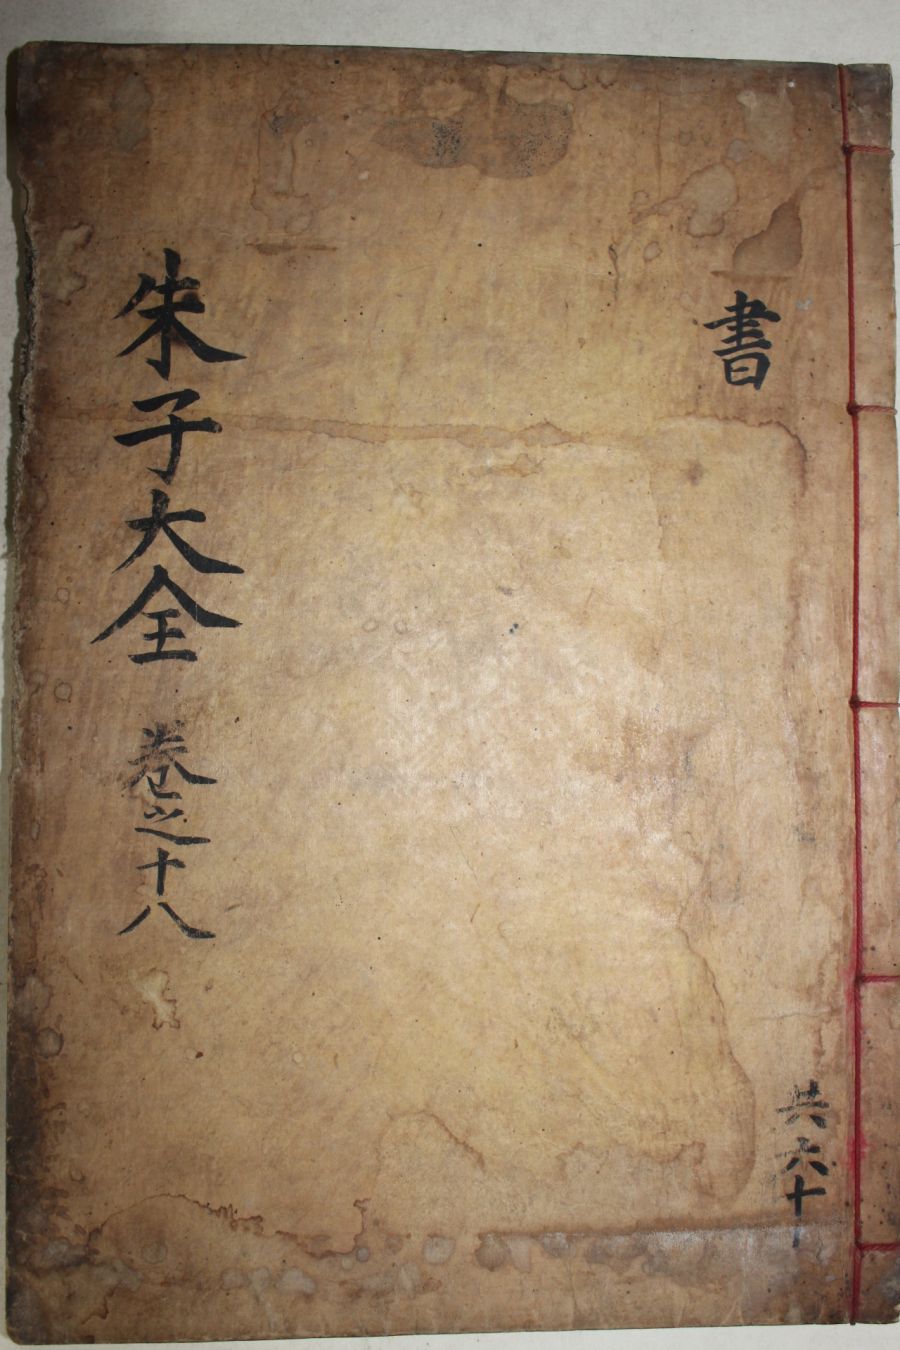 書
共六十
朱子大全 卷之十八